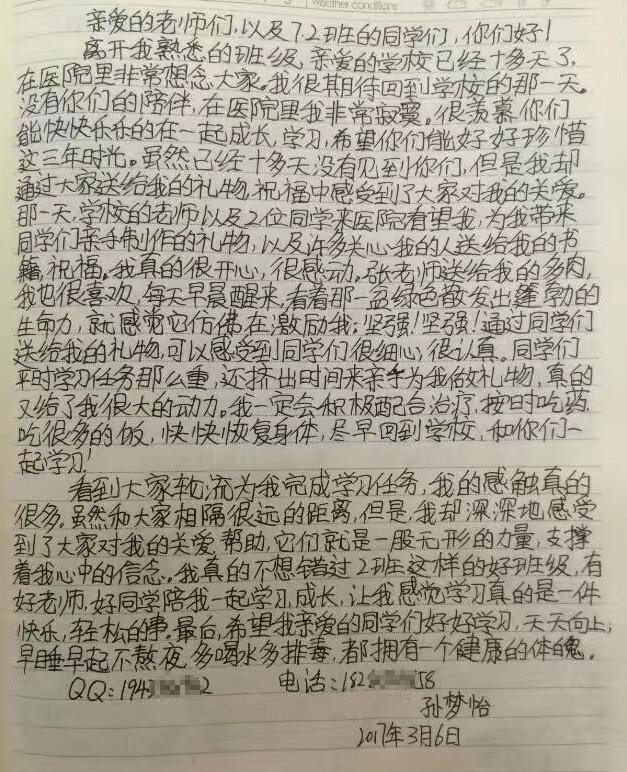 Weather conditions
亲爱的老师们，以及7.2班的同学们，你们好！
离开我熟悉的班级，亲爱的学校已经十多天了，
在医院里非常想念大家。我很期待回到学校的那一天。
没有你们的陪伴，在医院里我非常寂寞。很羡慕你们
能快快乐乐的在一起成长，学习，希望你们能好好珍惜
这三年时光。虽然已经十多天没有见到你们，但是我却
通过大家送给我的礼物，祝福中感受到了大家对我的关爱。
那一天，学校的老师以及2位同学来医院看望我，为我带来
同学们亲手制作的礼物，以及许多关心我的人送给我的书
籍，祝福。我真的很开心，很感动。张老师送给我的多肉，
我也很喜欢，每天早晨醒来，看着那一盆绿色散发出蓬勃的
生命力，就感觉它仿佛在激励我：坚强！坚强！通过同学们
送给我的礼物，可以感受到同学们很细心，很认真。同学们
平时学习任务那么重，还挤出时间来亲手为我做礼物，真的
又给了我很大的动力。我一定会积极配合治疗，按时吃药，
吃很多的饭，快快恢复身体，尽早回到学校，和你们一
起学习！
看到大家轮流为我完成学习任务，我的感触真的
很多。虽然和大家相隔很远的距离，但是，我却深深地感受
到了大家对我的关爱，帮助，它们就是一股无形的力量，支撑
着我心中的信念。我真的不想错过2班这样的好班级，有
好老师，好同学陪我一起学习，成长，让我感觉学习真的是一件
快乐，轻松的事。最后，希望我亲爱的同学们好好学习，天天向上；
早睡早起不熬夜，多喝水多排毒，都拥有一个健康的体魄。
QQ：194 2 电话：182 58
孙梦怡
2017年3月6日